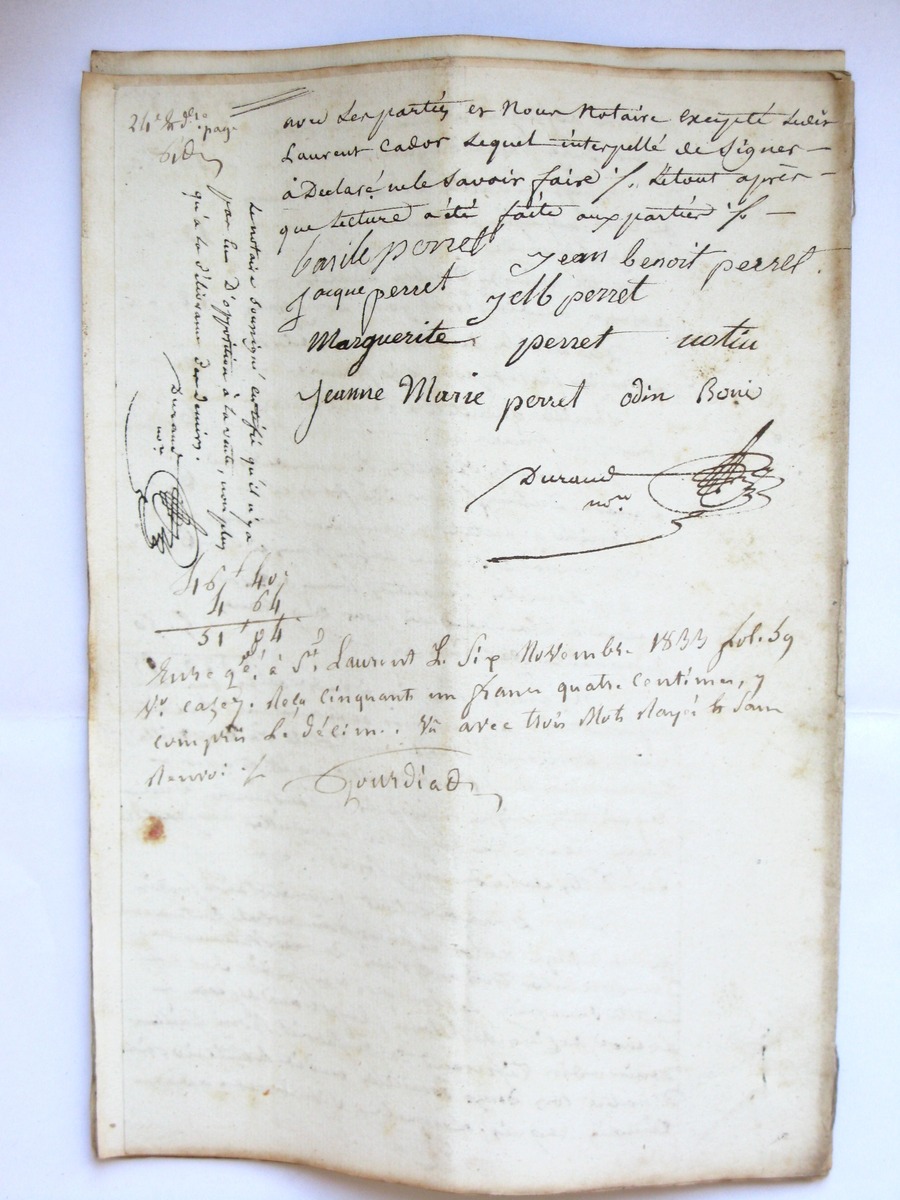 24e & dere page
avec les parties et Nous Notaire Excepté Ledit
Laurent Cador Lequel interpellé de Signer
à Declaré ne le savoir faire ./. Le tout après
que Lecture a été faite aux parties ./.
basile perret
Jean benoit perret.
jacque perret
perret
Marguerite perret notin
Jeanne Marie perret odin
Durand
nore
Le notaire soussigné certifie qu'il n'y a
pas eu D'opposition à la vente, non plus
qu'à la délivrance des deniers.
Durand
nore
46f 40c
4 64
51 04
Enregé à St. Laurent L. Six Novembre 1833 fol. 59
Vo. Cases. Reçu Cinquante un francs quatre Centimes, y
compris Le décime. Vu avec trois Mots Rayés & sans
Renvoi ./.